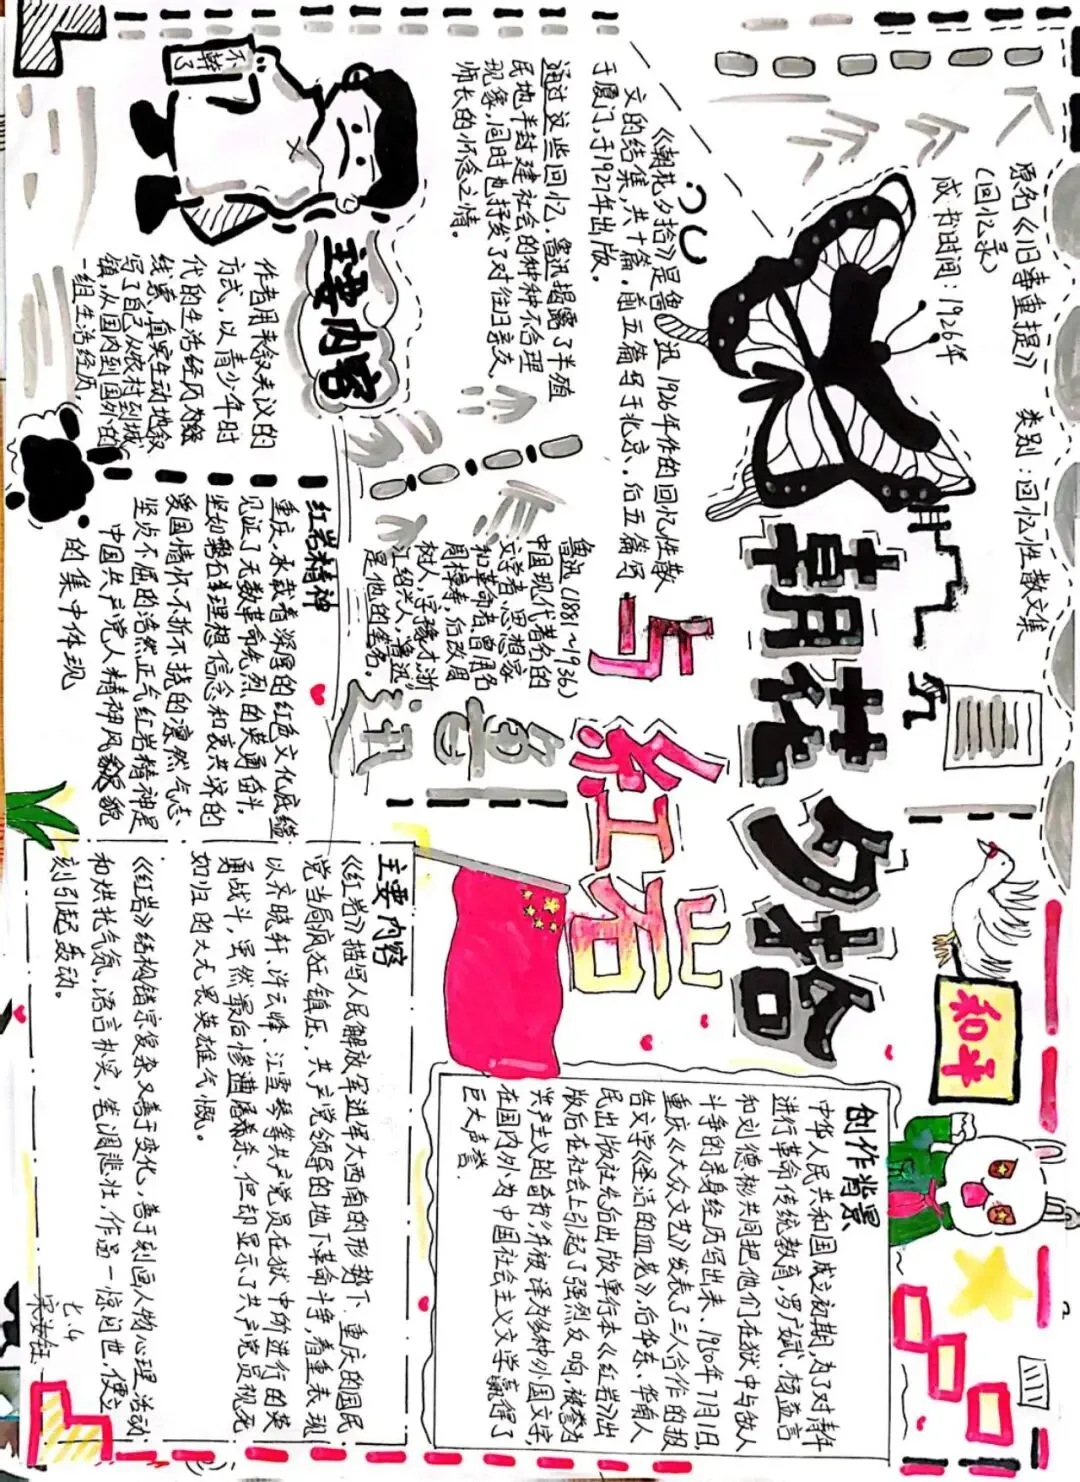 原名《旧事重提》
(回忆录)
类别:回忆性散文集
成书时间:1926年
朝花夕拾
与
红岩
《朝花夕拾》是鲁迅1926年作的回忆性散
文的结集,共十篇.前五篇写于北京.后五篇写
于厦门,于1927年出版.
通过这些回忆,鲁迅揭露了半殖
民地半封建社会的种种不合理
现象,同时也抒发了对往日亲友
师长的怀念之情。
不幹了
鲁迅(1881~1936)
中国现代著名的
文学者、思想家
和革命者.曾用名
周樟寿,后改周
树人,字豫才,浙
江绍兴人."鲁迅"
是他的笔名.
鲁迅
主要内容
作者用夹叙夹议的
方式,以青少年时
代的生活经历为线
线索,真实生动地叙
写了自己从农村到城
镇,从国内到国外的
一组生活经历,
红岩精神
重庆,承载着深厚的红色文化底蕴
见证了无数革命先烈的英勇奋斗,
坚如磐石理想信念和衷共济的
爱国情怀.不折不挠的凛然气志
坚贞不屈的浩然正气红岩精神是
中国共产党人精神风貌
的集中体现
和平
创作背景
中华人民共和国成立初期,为了对青年
进行革命传统教育,罗广斌、杨益言
和刘德彬共同把他们在狱中与敌人
斗争的亲身经历写出来、1950年7月1日,
重庆《大众文艺》发表了三人合作的报
告文学《圣洁的血花》,后华东、华南人
民出版社先后出版单行本《红岩》出
版后在社会上引起了强烈反响,被誉为
共产主义的奇书,并被译为多种外国文字,
在国内外为中国社会主义文学赢得了
巨大声誉.
主要内容
《红岩》描写人民解放军进军大西南的形势下.重庆的国民
党当局疯狂镇压,共产党领导的地下革命斗争,着重表现
以齐晓轩、许云峰、江雪琴等共产党员在狱中所进行的英
勇战斗,虽然最后惨遭屠杀,但却显示了共产党员视死
如归的大无畏英雄气慨。
《红岩》结构错宗复杂又善于变化,善于刻画人物心理活动
和烘托气氛,语言朴实,笔调悲壮,作品一惊问世,便立
刻引起轰动。
七.4